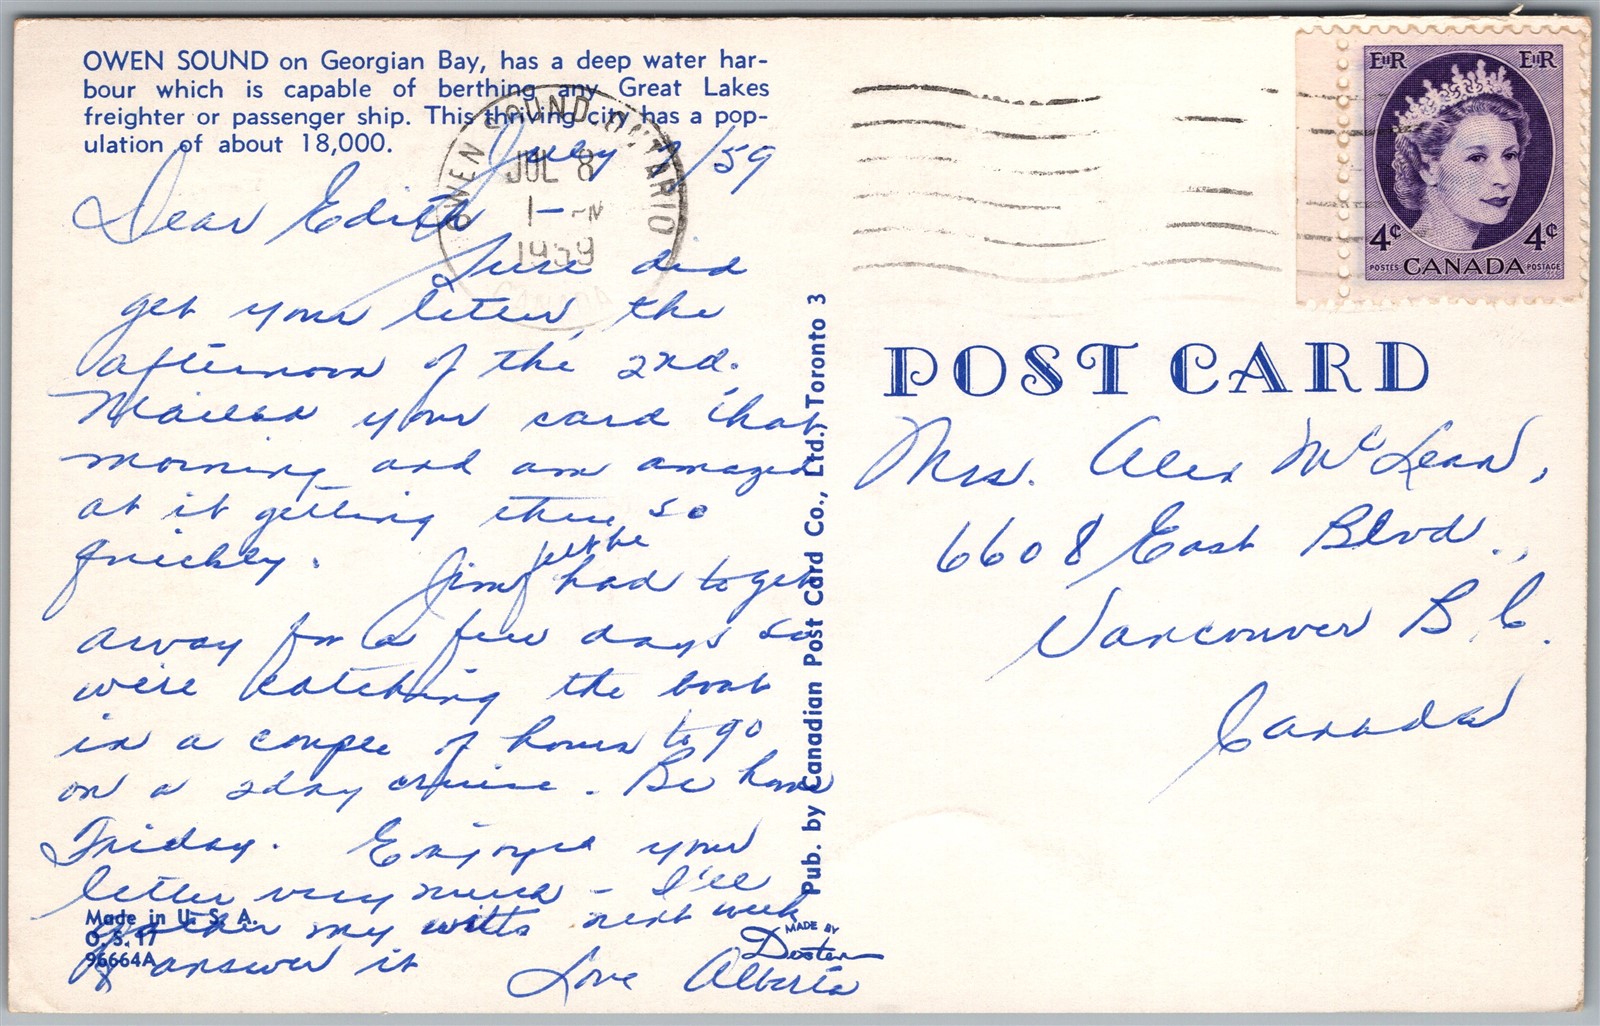 OWEN SOUND on Georgian Bay, has a deep water har-
bour which is capable of berthing any Great Lakes
freighter or passenger ship. This thriving city has a pop-
ulation of about 18,000.
OWEN SOUND ONTARIO
JUL 8
1959
CANADA
EIIR EIIR
4¢ 4¢
POSTES CANADA POSTAGE
July 7/59
Dear Edith
Sure did
get your letter, the
afternoon of the 2nd.
Mailed your card that
morning and am amazed
at it getting there so
quickly.
Jim felt he had to get
away for a few days so
were catching the boat
in a couple of hours to go
on a 2 day cruise. Be home
Friday. Enjoyed your
letter very much – I'll
gather my wits next week
& answer it
Love Alberta
Made in U. S. A.
O. S. 17
96664A
MADE BY
Dexter
Pub. by Canadian Post Card Co., Ltd., Toronto 3
POST CARD
Mrs. Alex McLean,
6608 East Blvd.,
Vancouver B.C.
Canada